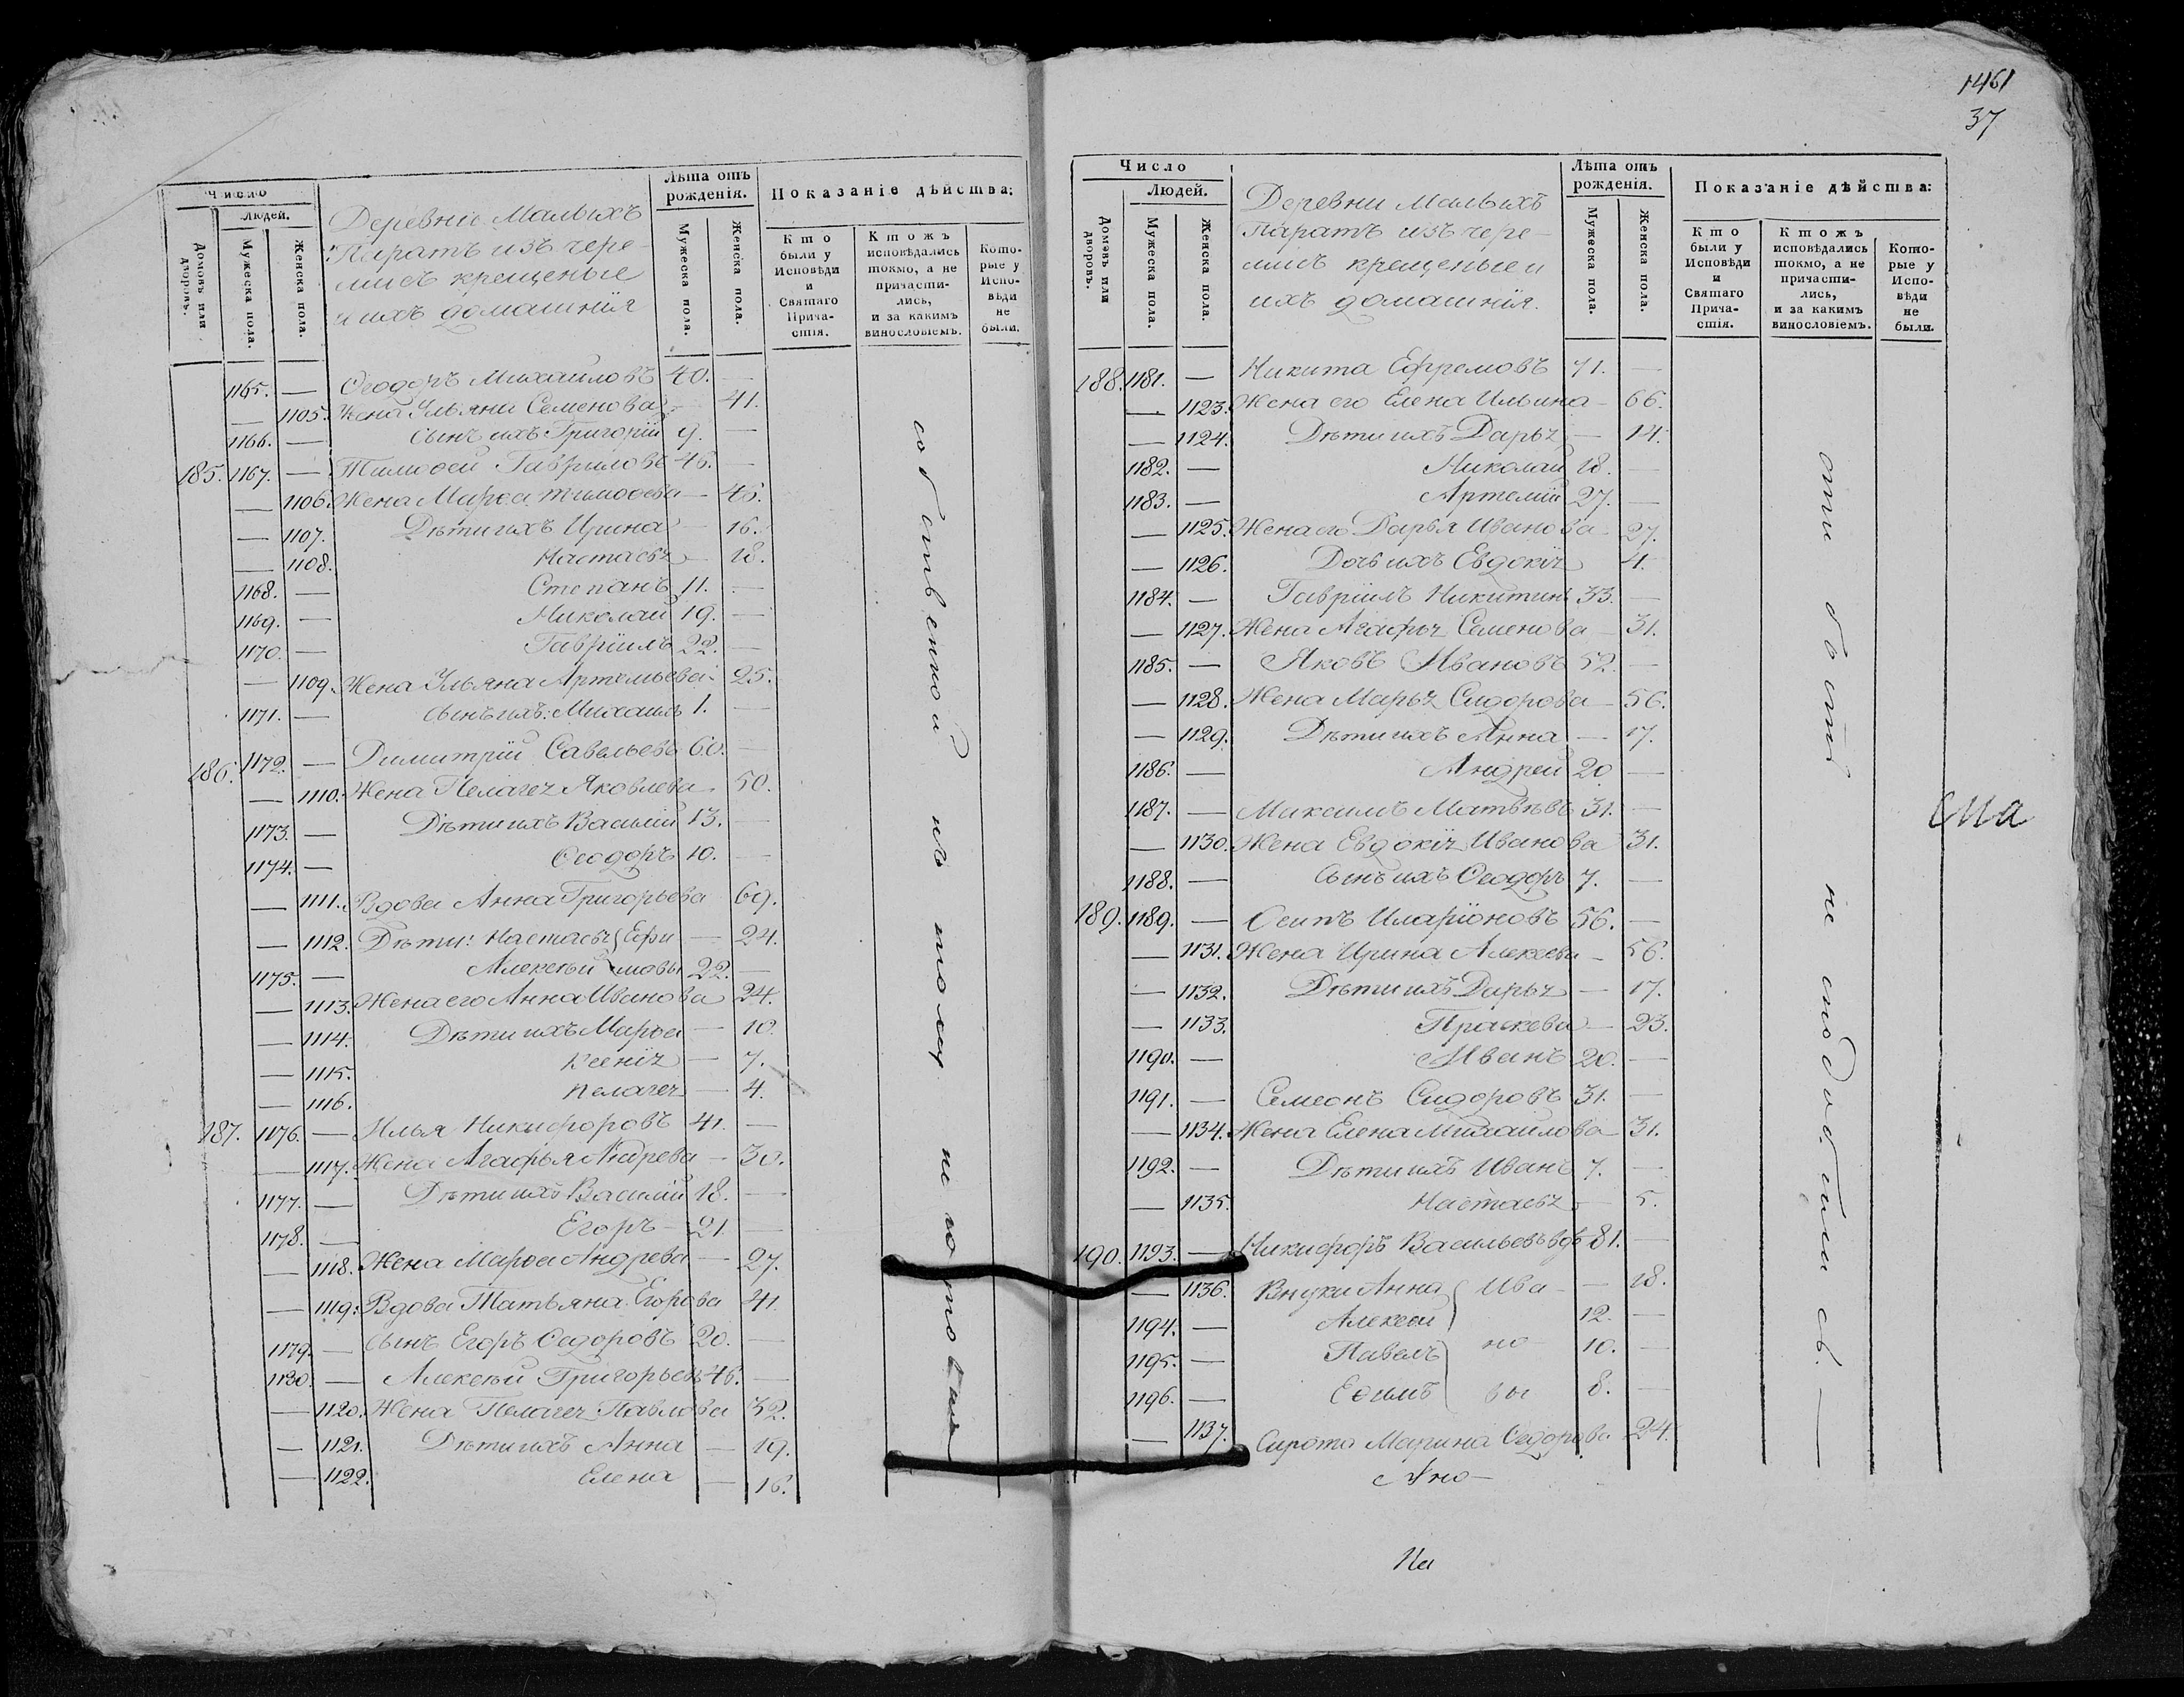 Число
Людей.
Домовъ или дворовъ.
Мужеска пола.
Женска пола.
Деревни Малыхъ
Паратъ изъ чере-
мисъ крещеные
и ихъ домашнія
Лѣта отъ рожденія.
Мужеска пола.
Женска пола.
Показаніе дѣйства:
Кто были у Исповѣди и Святаго Прича-стія.
Ктожъ исповѣдались токмо, а не причасти-лись, и за какимъ винословіемъ.
Кото-рые у Испо-вѣди не были.
1165. — Ѳеодоръ Михаиловъ 40. —
— 1105. Жена Ульяна Семенова — 41.
1166. — Сынъ ихъ Григорій 9. —
185. 1167. — Тимоѳей Гавриловъ 46. —
— 1106. Жена Марѳа Тимоѳева — 46.
— 1107. Дѣти ихъ Ирина — 16.
— 1108. Настасья — 18.
1168. — Степанъ 11. —
1169. — Николай 19. —
1170. — Гавріилъ 22. —
— 1109. Жена Ульяна Артемьева — 25.
1171. — сынъ ихъ: Михаилъ 1. —
186. 1172. — Димитрій Савельевъ 60. —
— 1110. Жена Пелагея Яковлева — 50.
1173. — Дѣти ихъ Василій 13. —
1174. — Ѳеодоръ 10. —
— 1111. Вдова Анна Григорьева 69.
— 1112. Дѣти: Настасья Ефи — 24.
1175. — Алексѣй мовы 22. —
— 1113. Жена его Анна Иванова 24.
— 1114. Дѣти ихъ Марѳа — 10.
— 1115. Ксенія — 7.
— 1116. Пелагея — 4.
187. 1176. — Илья Никифоровъ 41. —
— 1117. Жена Агафья Андрева — 30.
1177. — Дѣти ихъ Василій 18. —
1178. — Егоръ 21 —
— 1118. Жена Марѳа Андрева — 27.
— 1119. Вдова Татьяна Егорова 41
1179. — Сынъ Егоръ Ѳедоровъ 20. —
1180. — Алексѣй Григорьевъ 46. —
— 1120. Жена Пелагея Павлова 32.
— 1121. Дѣти ихъ Анна — 19.
— 1122. Елена — 16.
собственной къ тому не готовы
1461
37
Число
Людей.
Домовъ или дворовъ.
Мужеска пола.
Женска пола.
Деревни Малыхъ
Паратъ изъ чере-
мисъ крещеные и
ихъ домашнія.
Лѣта отъ рожденія.
Мужеска пола.
Женска пола.
Показаніе дѣйства:
Кто были у Исповѣди и Святаго Прича-стія.
Ктожъ исповѣдались токмо, а не причасти-лись, и за какимъ винословіемъ.
Кото-рые у Испо-вѣди не были.
188. 1181. — Никита Ефремовъ 71. —
— 1123. Жена его Елена Ильина — 66.
— 1124. Дѣти ихъ Дарья — 14.
1182. — Николай 18. —
1183. — Артемій 27. —
— 1125. Жена его Дарья Иванова — 27.
— 1126. Дочь ихъ Евдокія 4.
1184. — Гавріилъ Никитинъ 33. —
— 1127. Жена Агафья Семенова — 31.
1185. — Яковъ Ивановъ 52. —
— 1128. Жена Марья Сидорова — 56.
— 1129. Дѣти ихъ Анна — 17.
1186. — Андрей 20 —
1187. — Максимъ Матвѣевъ 31. —
— 1130. Жена Евдокія Иванова 31.
1188. — Сынъ ихъ Ѳеодоръ 7. —
189. 1189. — Осипъ Иларіоновъ 56. —
— 1131. Жена Ирина Алексева — 56.
— 1132. Дѣти ихъ Дарья — 17.
— 1133. Праскева — 23.
1190. — Иванъ 20. —
1191. — Семеонъ Сидоровъ 31. —
— 1134. Жена Елена Михаилова — 31.
1192. — Дѣти ихъ Иванъ 7. —
— 1135. Настасья — 5.
190. 1193. — Никифоръ Васильевъ вдъ 81. —
— 1136. Внуки Анна Ива- — 18.
1194. — Алексей 12. —
1195. — Павелъ но 10. —
1196. — Еѳимъ вы 8. —
— 1137. Сирота Марина Ѳедорова 24.
сма
На